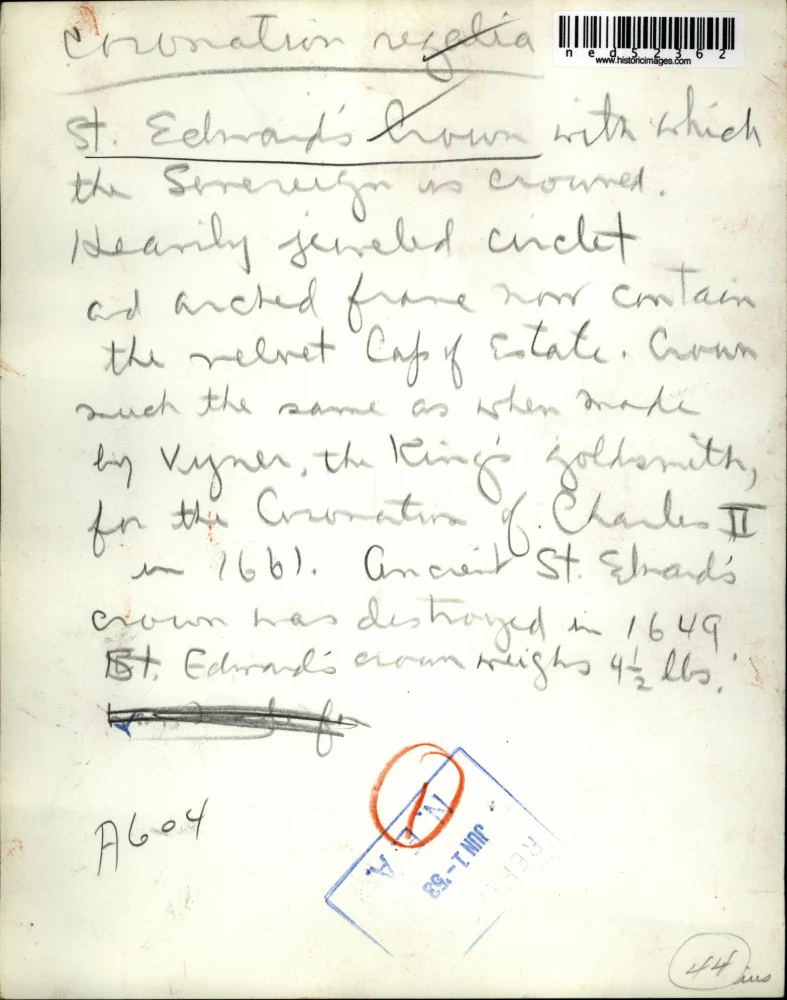 Coronation regalia
ned52362
www.historicimages.com
St. Edward's Crown with which
the Sovereign is crowned.
Heavily jeweled circlet
and arched frame now contain
the velvet Cap of Estate. Crown
much the same as when made
by Vyner, the King's goldsmith,
for the Coronation of Charles II
in 1661. Ancient St. Edward's
crown was destroyed in 1649.
St. Edward's crown weighs 4½ lbs.
A604
N.E.A.
JUN 1-'53
44